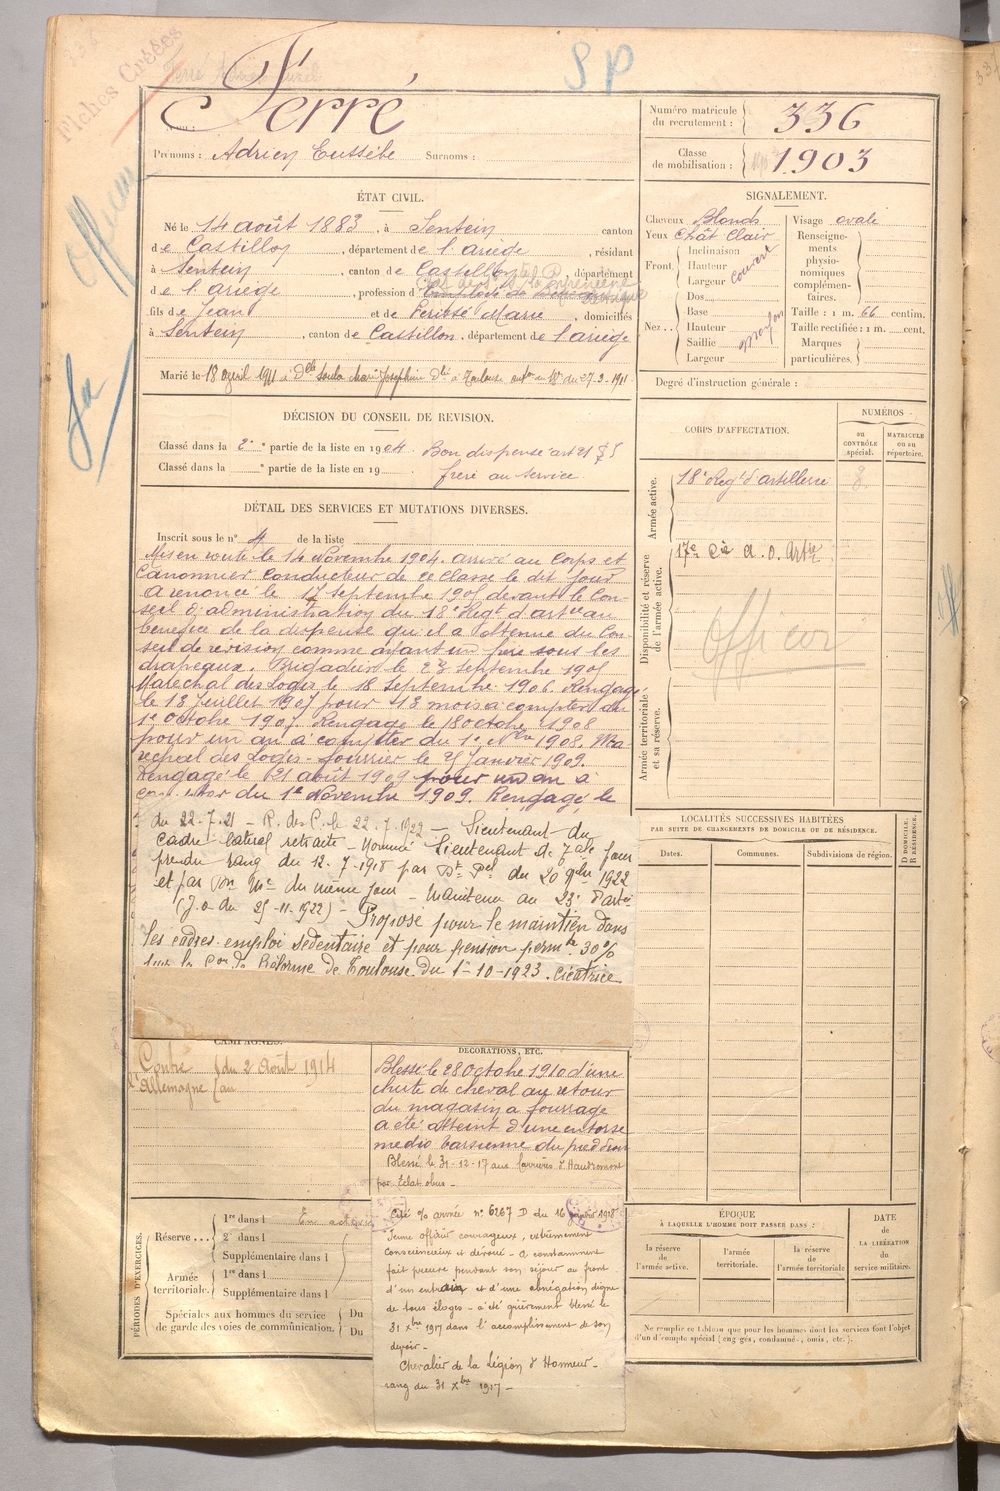 Fiches Créées
SP
Ferré
Nom :
Prénoms : Adrien Eusèbe Surnoms :
Numéro matricule du recrutement : 336
Classe de mobilisation : 1903
ÉTAT CIVIL.
Né le 14 août 1883, à Sentein canton
de Castillon, département de l'ariège, résidant
à Sentein, canton de Castillon, département
de l'ariège, profession d
fils de Jean et de Marie, domiciliés
à Sentein, canton de Castillon, département de l'ariège
Marié le 18 avril 1911 à Dlle Soula à Toulouse du 27-3-1911
SIGNALEMENT.
Cheveux Blonds Visage ovale
Yeux Chât Clair
Renseignements physionomiques complémentaires.
Front. Inclinaison
Hauteur couvert
Largeur
Nez... Dos
Base
Hauteur moyen
Saillie
Largeur
Taille : 1 m. 66 centim.
Taille rectifiée : 1 m. cent.
Marques particulières.
Degré d'instruction générale :
DÉCISION DU CONSEIL DE REVISION.
Classé dans la 2e partie de la liste en 1904. Bon dispensé art 21
Classé dans la e partie de la liste en 19 frère au service.
CORPS D'AFFECTATION.
NUMÉROS
au CONTRÔLE spécial.
MATRICULE ou au répertoire.
Armée active.
18e Regt d'artillerie
Disponibilité et réserve de l'armée active.
17e Cie a. o. Artie
Officier
Armée territoriale et sa réserve.
DÉTAIL DES SERVICES ET MUTATIONS DIVERSES.
Inscrit sous le n° 4 de la liste
Mis en route le 14 Novembre 1904. arrivé au Corps et
Canonnier Conducteur de 2e Classe le dit jour
A renoncé le 17 septembre 1905 devant le Con-
seil d'administration du 18e Regt d'artie au
bénéfice de la dispense qu'il a obtenue du Con-
seil de revision comme ayant un frère sous les
drapeaux. Brigadier le 23 Septembre 1905
Maréchal des Logis le 18 Septembre 1906. Rengagé
le 13 Juillet 1907 pour 13 mois à compter du
1e Octobre 1907. Rengagé le 18 octobre 1908
pour un an à compter du 1e Nbre 1908. Ma-
réchal des Logis-fourrier le 25 Janvier 1909.
Rengagé le 21 août 1909 pour un an à
compter du 1e Novembre 1909. Rengagé le
du 22.7.21 - R. des C. le 22.7.1922 - Lieutenant du
cadre latéral retraite - Nommé Lieutenant de pour
prendre rang du 12-7-1918 par Dt Pel du 20 1922
et par Don Mle du même jour - Maintenu au 23e d'artie
(J.O. du 25-11-1922) - Proposé pour le maintien dans
les cadres emploi sédentaire et pour pension permte 30%
par la Con de Réforme de Toulouse du 1-10-1923. cicatrice
LOCALITÉS SUCCESSIVES HABITÉES
PAR SUITE DE CHANGEMENTS DE DOMICILE OU DE RÉSIDENCE.
Dates. Communes. Subdivisions de région.
D DOMICILE. R RÉSIDENCE.
CAMPAGNES.
Contre l'Allemagne du 2 Août 1914
au
DÉCORATIONS, ETC.
Blessé le 28 Octobre 1910 d'une
chute de cheval au retour
du magasin à fourrage
a été atteint d'une entorse
medio tarsienne du pied droit
Blessé le 31-12-17 aux Carrières d'Haudromont
par éclat obus -
Cité % armée n° 6267 D du 16 janvier 1918
Jeune officier courageux, extrêmement
consciencieux et dévoué - A constamment
fait preuve pendant son séjour au front
d'un entrain et d'une abnégation digne
de tous éloges - a été grièvement blessé le
31 Xbre 1917 dans l'accomplissement de son
devoir -
Chevalier de la Légion d'Honneur -
rang du 31 Xbre 1917 -
PÉRIODES D'EXERCICES.
Réserve... 1re dans l
2e dans l
Supplémentaire dans l
Armée territoriale. 1re dans l
Supplémentaire dans l
Spéciales aux hommes du service de garde des voies de communication. Du
Du
ÉPOQUE
À LAQUELLE L'HOMME DOIT PASSER DANS :
la réserve de l'armée active.
l'armée territoriale.
la réserve de l'armée territoriale
DATE de LA LIBÉRATION du service militaire.
Ne remplir ce tableau que pour les hommes dont les services font l'objet
d'un décompte spécial (engagés, condamnés, omis, etc.).